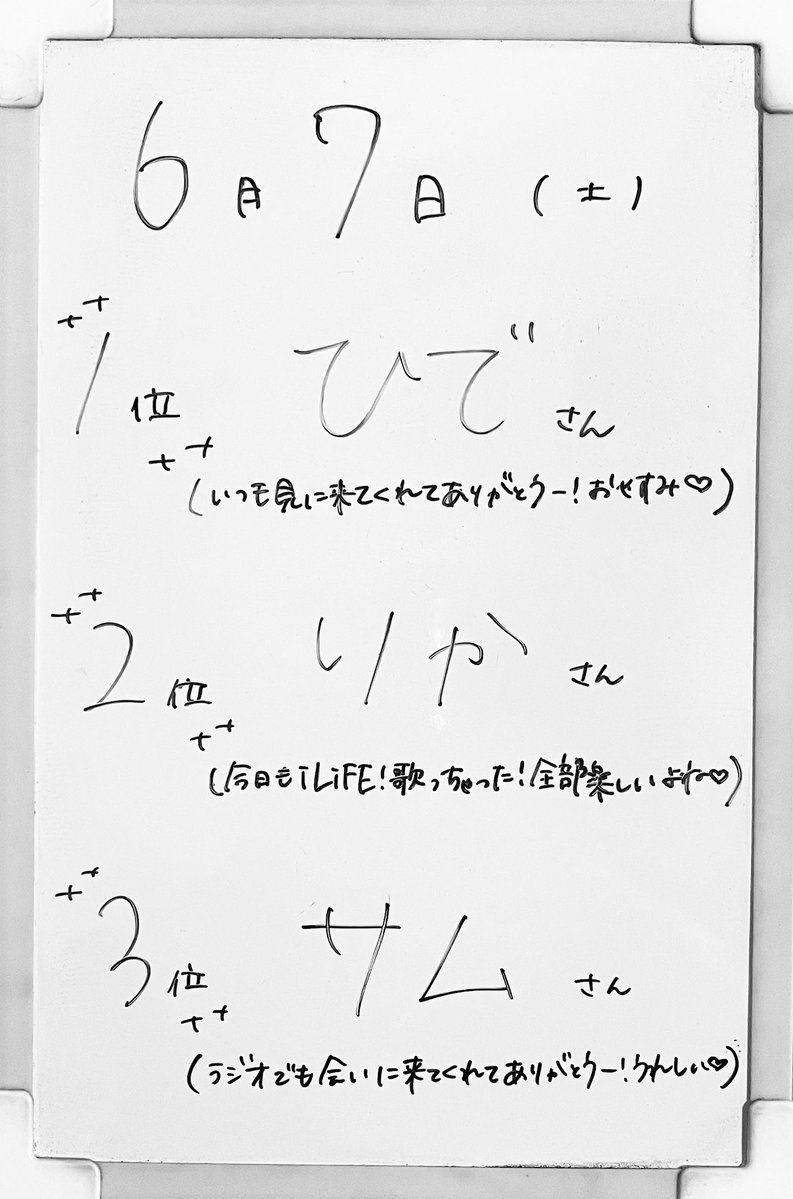 6月7日(土)
1位 ひでさん
(いつも見に来てくれてありがとうー!おやすみ♡)
2位 りかさん
(今日もiLiFE!歌っちゃった!全部楽しいよね♡)
3位 サムさん
(ラジオでも会いに来てくれてありがとうー!うれしい♡)